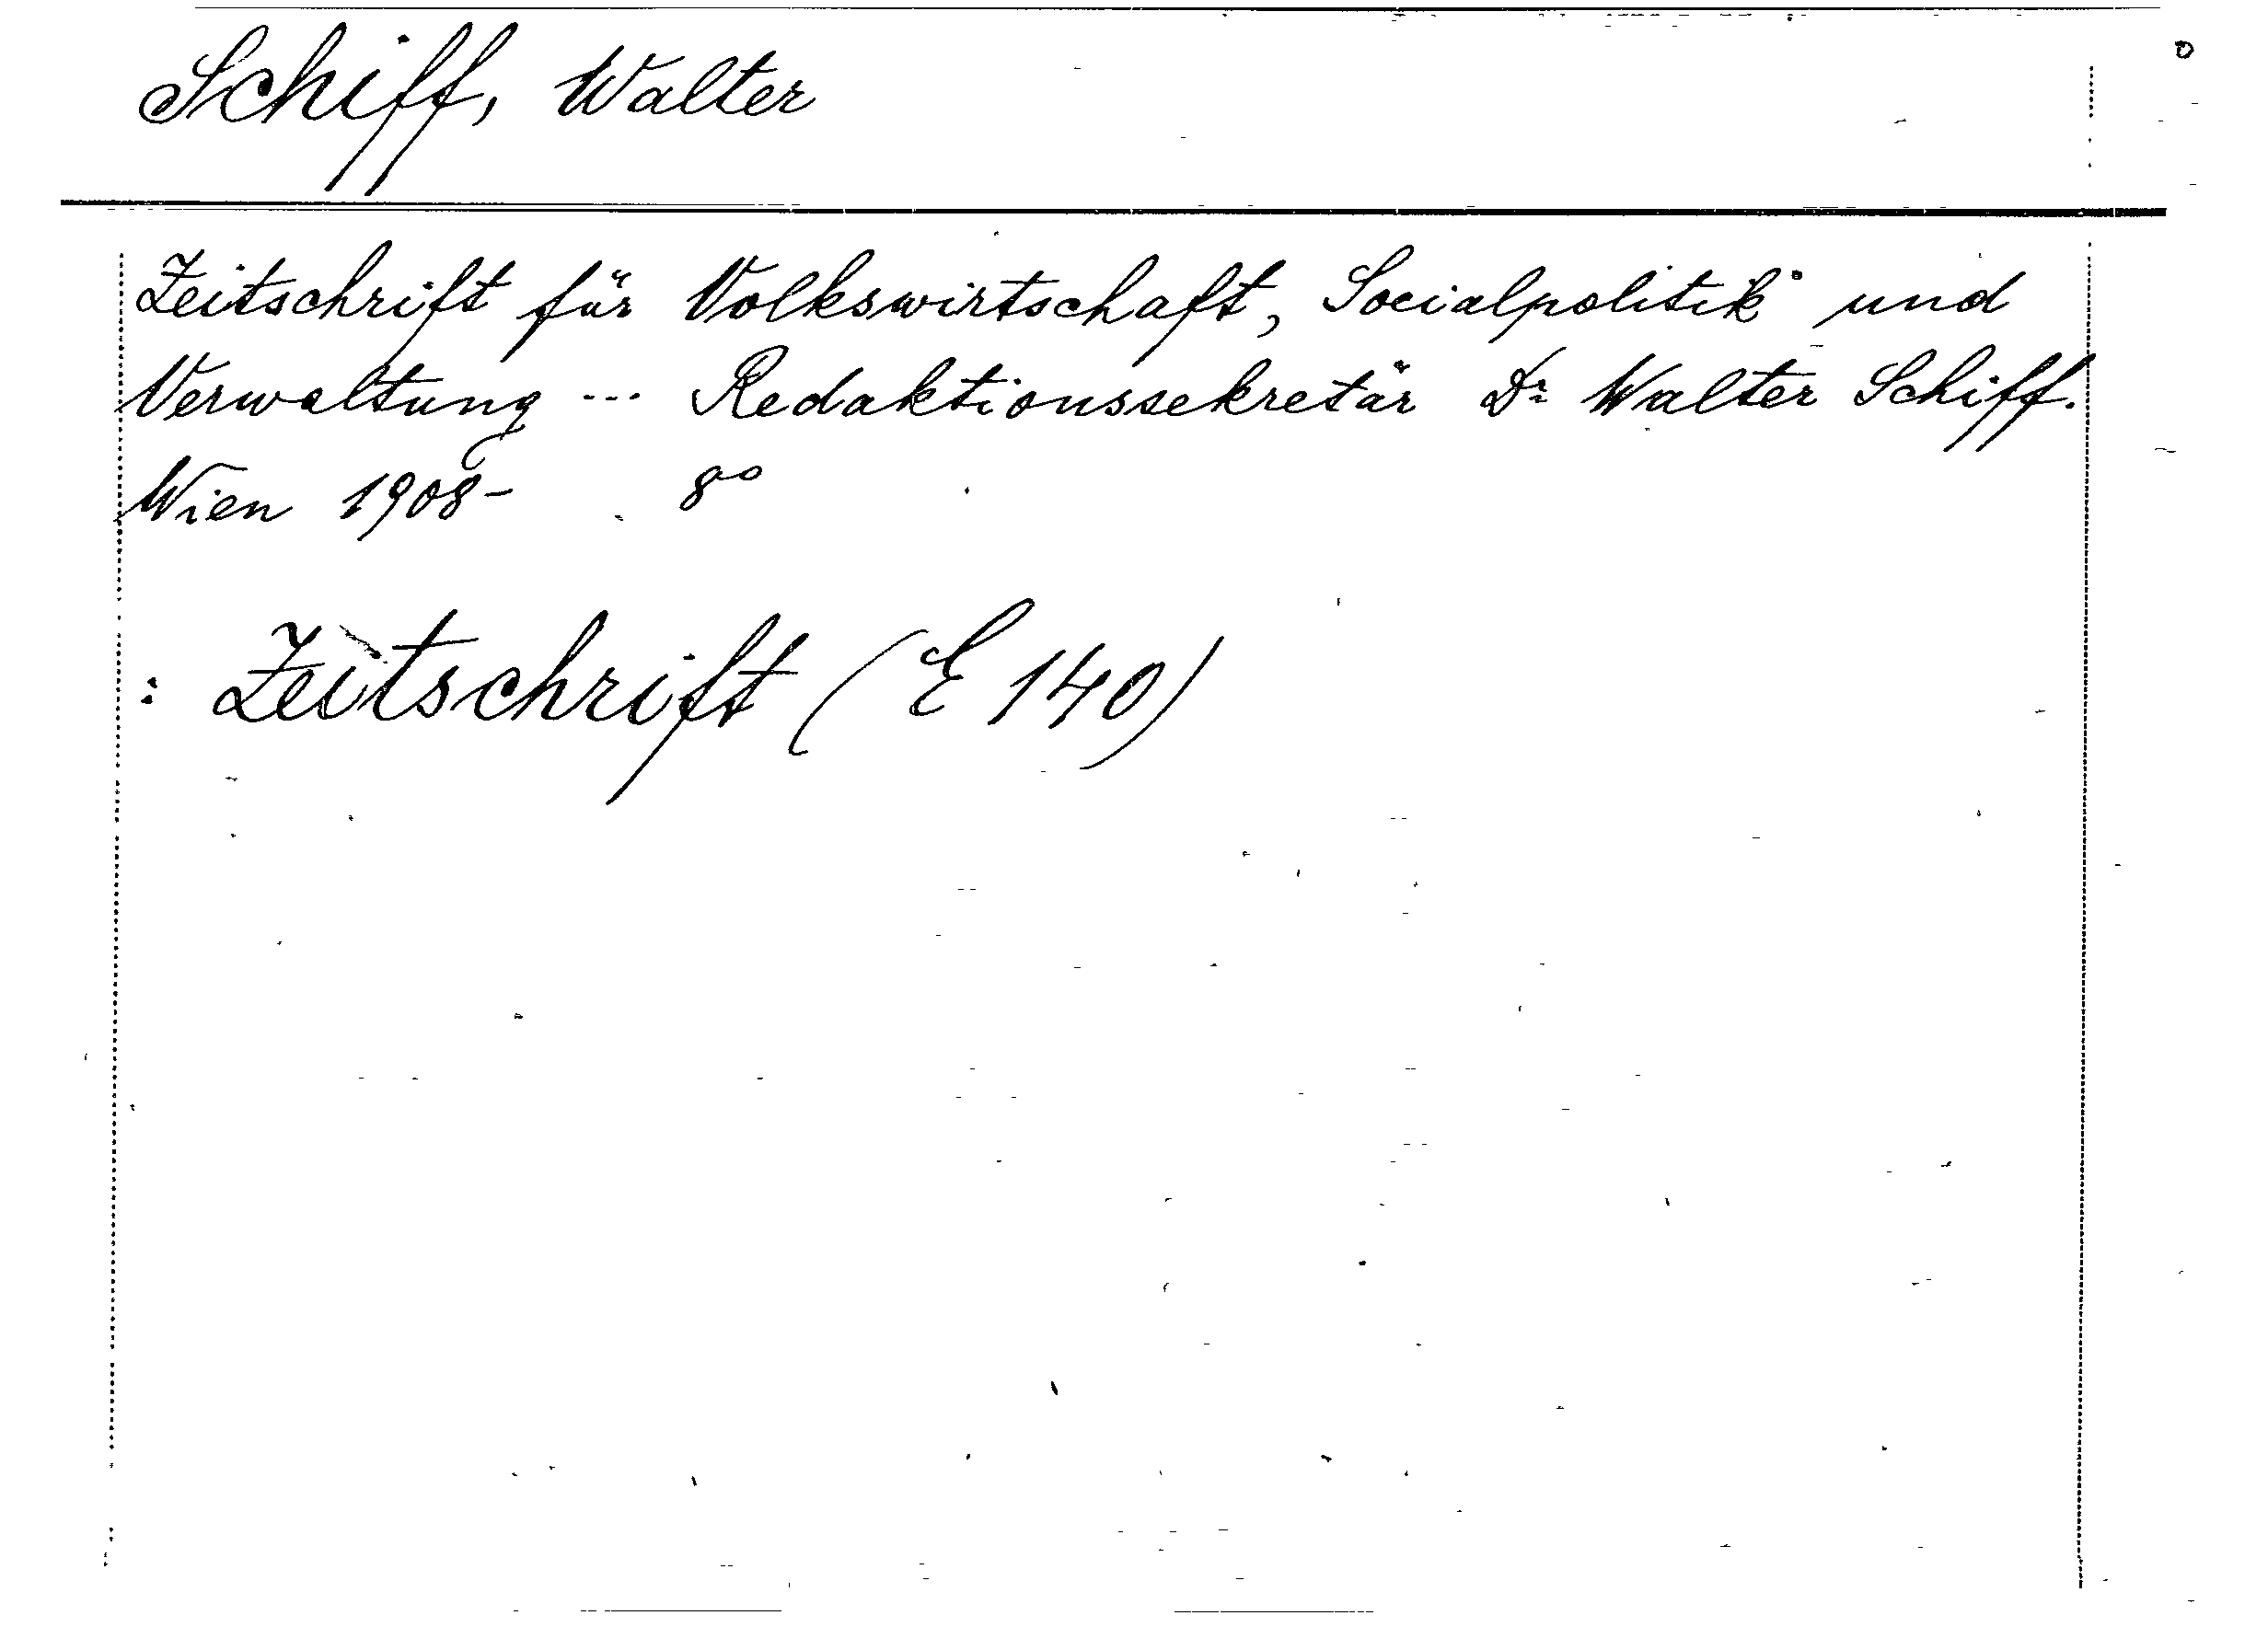 Schiff, Walter
Zeitschrift für Volkswirtschaft, Socialpolitik und
Verwaltung ... Redaktionssekretär Dr Walter Schiff.
Wien 1908- 8°
: Zeitschrift (E 140)